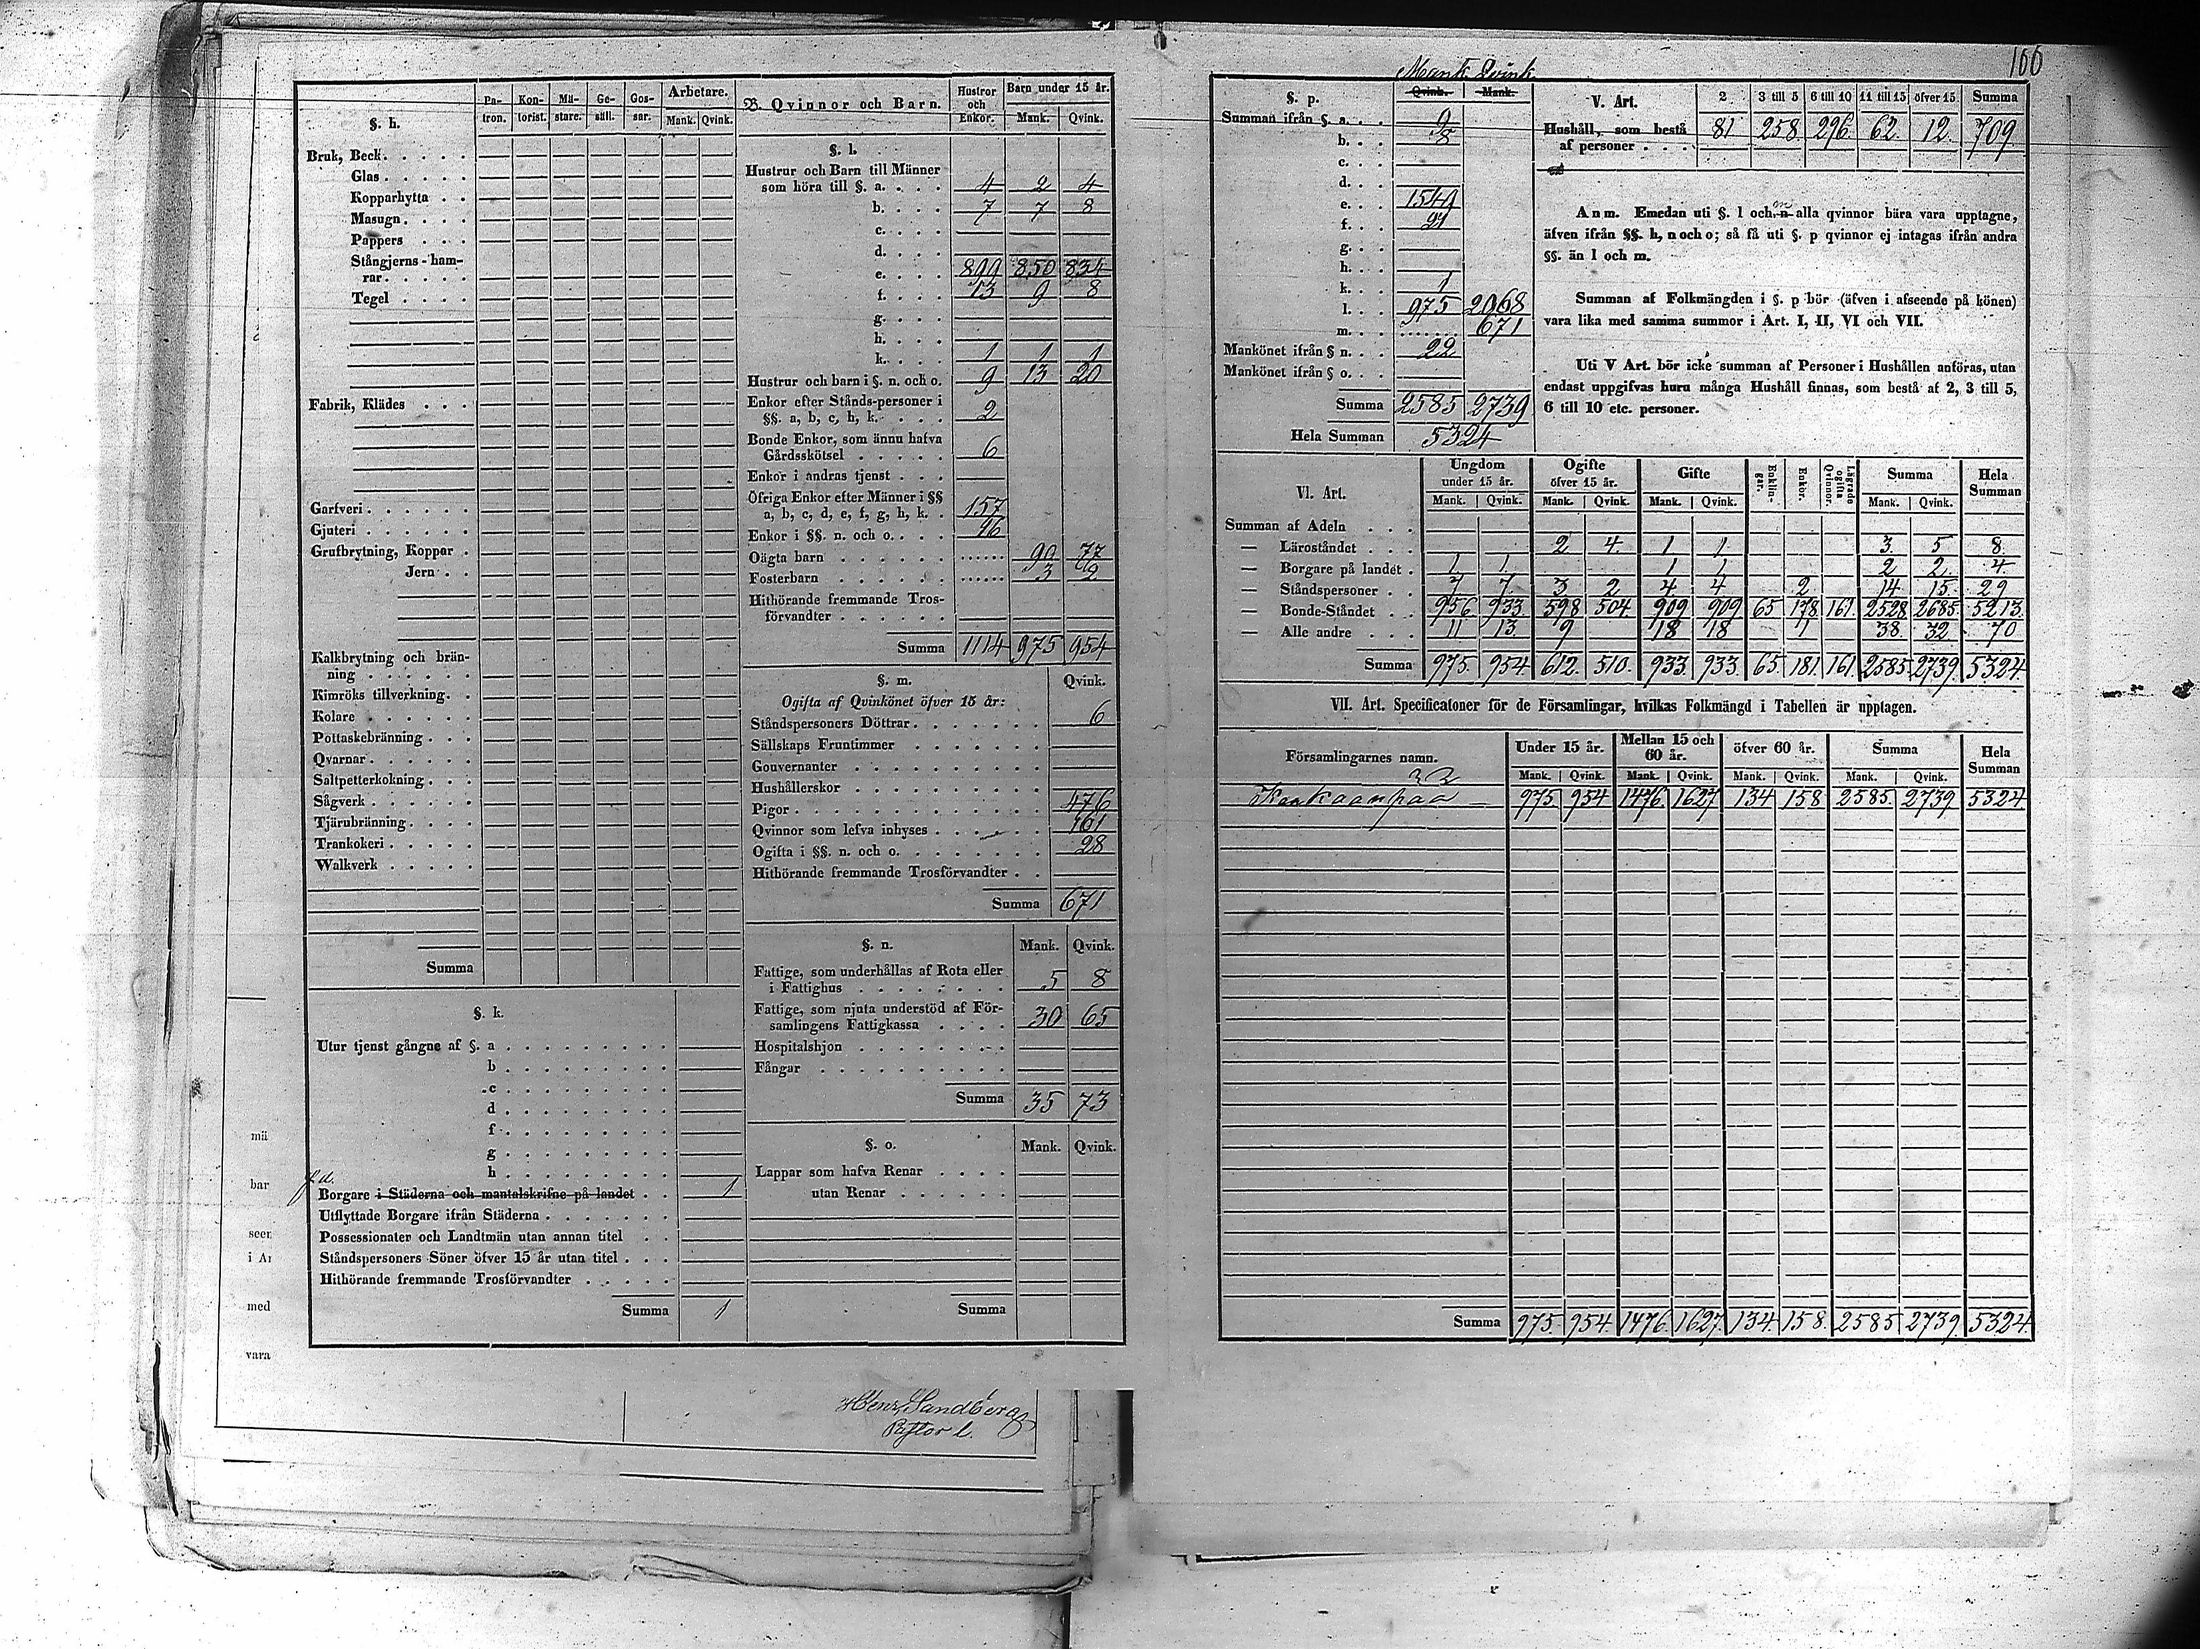 166
§. h.
Pa-tron. Kon-torist. Mä-stare. Ge-säll. Gos-sar. Arbetare.
Mank. Qvink.
Bruk, Beck
Glas
Kopparhytta
Masugn
Pappers
Stångjerns-ham-
rar
Tegel
Fabrik, Klädes
Garfveri
Gjuteri
Grufbrytning, Koppar
Jern
Kalkbrytning och brän-
ning
Kimröks tillverkning
Kolare
Pottaskebränning
Qvarnar
Saltpetterkokning
Sågverk
Tjärubränning
Trankokeri
Walkverk
Summa
§. k.
Utur tjenst gångne af §. a
b
c
d
f
g
h
f.d.
Borgare i Städerna och mantalskrifne på landet 1
Utflyttade Borgare ifrån Städerna
Possessionater och Landtmän utan annan titel
Ståndspersoners Söner öfver 15 år utan titel
Hithörande fremmande Trosförvandter
Summa 1
B. Qvinnor och Barn. Hustror och Enkor. Barn under 15 år.
Mank. Qvink.
§. l.
Hustrur och Barn till Männer
som höra till §. a. 4 2 4
b. 7 7 8
c.
d.
e. 899 850 834
f. 13 9 8
g.
h.
k. 1 1 1
Hustrur och barn i §. n. och o. 9 13 20
Enkor efter Stånds-personer i
§§. a, b, c, h, k. 2
Bonde Enkor, som ännu hafva
Gårdsskötsel 6
Enkor i andras tjenst
Öfriga Enkor efter Männer i §§
a, b, c, d, e, f, g, h, k. 157
Enkor i §§. n. och o. 16
Oägta barn 90 77
Fosterbarn 3 2
Hithörande fremmande Tros-
förvandter
Summa 1114 975 954
§. m. Qvink.
Ogifta af Qvinkönet öfver 15 år:
Ståndspersoners Döttrar 6
Sällskaps Fruntimmer
Gouvernanter
Hushållerskor
Pigor 476
Qvinnor som lefva inhyses 161
Ogifta i §§. n. och o. 28
Hithörande fremmande Trosförvandter
Summa 671
§. n. Mank. Qvink.
Fattige, som underhållas af Rota eller
i Fattighus 5 8
Fattige, som njuta understöd af För-
samlingens Fattigkassa 30 65
Hospitalshjon
Fångar
Summa 35 73
§. o. Mank. Qvink.
Lappar som hafva Renar
utan Renar
Summa
mä
bar
seer
i Ar
med
vara
Henr. Sandberg
Pastor l.
Mank Qvink
§. p. Qvink. Mank.
Summan ifrån §. a. 9
b. 8
c.
d.
e. 1549
f. 21
g.
h.
k. 1
l. 975 2068
m. 671
Mankönet ifrån § n. 22
Mankönet ifrån § o.
Summa 2585 2739
Hela Summan 5324
V. Art. 2 3 till 5 6 till 10 11 till 15 öfver 15 Summa
Hushåll, som bestå
af personer 81 258 296 62 12 709
Anm. Emedan uti §. l och m alla qvinnor bära vara upptagne,
äfven ifrån §§. h, n och o; så få uti §. p qvinnor ej intagas ifrån andra
§§. än l och m.
Summan af Folkmängden i §. p bör (äfven i afseende på könen)
vara lika med samma summor i Art. I, II, VI och VII.
Uti V Art. bör icke summan af Personer i Hushållen anföras, utan
endast uppgifvas huru många Hushåll finnas, som bestå af 2, 3 till 5,
6 till 10 etc. personer.
VI. Art. Ungdom under 15 år. Ogifte öfver 15 år. Gifte Enklin-gar. Enkor. Lägrade ogifta Qvinnor. Summa Hela Summan
Mank. Qvink. Mank. Qvink. Mank. Qvink. Mank. Qvink.
Summan af Adeln
— Läroståndet 2 4 1 1 3 5 8
— Borgare på landet 1 1 1 1 2 2 4
— Ståndspersoner 7 7 3 2 4 4 2 14 15 29
— Bonde-Ståndet 956 933 598 504 909 909 65 178 161 2528 2685 5213
— Alle andre 11 13 9 18 18 1 38 32 70
Summa 975 954 612 510 933 933 65 181 161 2585 2739 5324
VII. Art. Specificatoner för de Församlingar, hvilkas Folkmängd i Tabellen är upptagen.
Församlingarnes namn. Under 15 år. Mellan 15 och 60 år. öfver 60 år. Summa Hela Summan
Mank. Qvink. Mank. Qvink. Mank. Qvink. Mank. Qvink.
Kankaanpaa 975 954 1476 1627 134 158 2585 2739 5324
Summa 975 954 1476 1627 134 158 2585 2739 5324